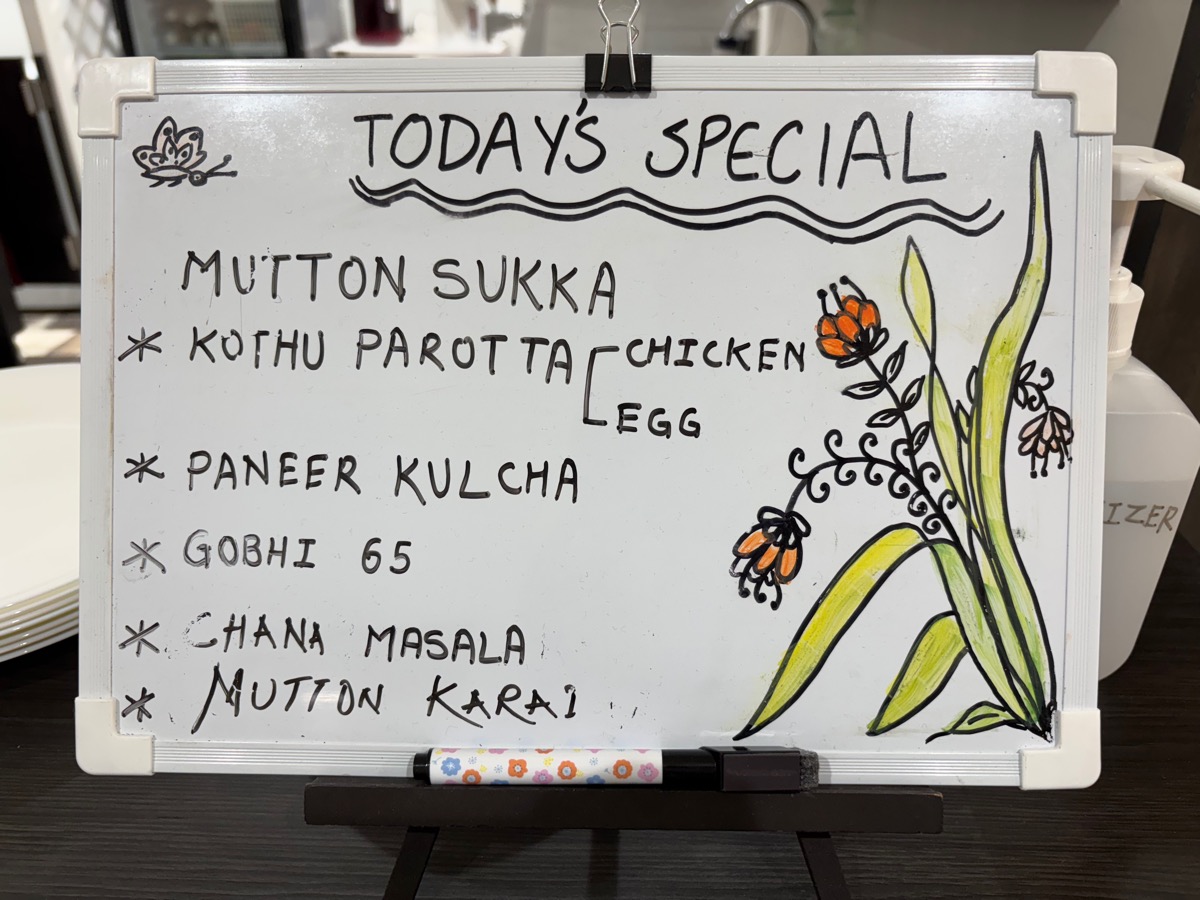 TODAY'S SPECIAL
MUTTON SUKKA
* KOTHU PAROTTA [CHICKEN
EGG
* PANEER KULCHA
* GOBHI 65
* CHANA MASALA
* MUTTON KARAI
IZER